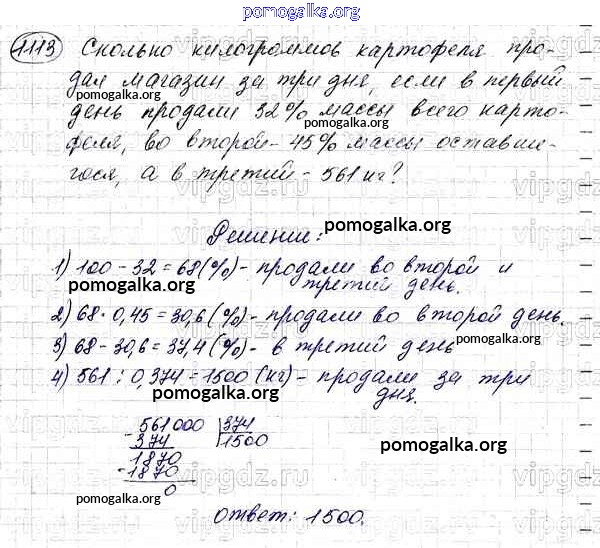 pomogalka.org
1113 Сколько килограммов картофеля про-
дал магазин за три дня, если в первый
pomogalka.org
день продали 32% массы всего карто-
pomogalka.org
феля, во второй - 45% массы оставше-
гося, а в третий - 561 кг?
pomogalka.org
vipgdz.ru vipgdz.ru vipgdz.ru
pomogalka.org
Решение:
1) 100 - 32 = 68 (%) - продали во второй и
третий день.
pomogalka.org
2) 68 · 0,45 = 30,6 (%) - продали во второй день.
3) 68 - 30,6 = 37,4 (%) - в третий день
pomogalka.org
4) 561 : 0,374 = 1500 (кг) - продали за три
дня.
pomogalka.org
561000 374
- 374 1500
1870
- 1870
0
pomogalka.org
pomogalka.org
vipgdz.ru vipgdz.ru vipgdz.ru
pomogalka.org
Ответ: 1500.